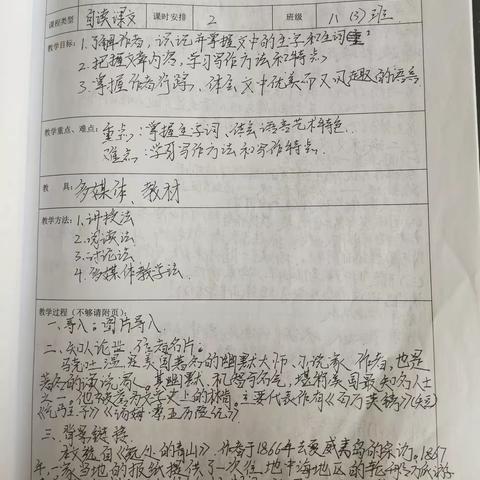 课程类型 自读课文 课时安排 2 班级 八(3)班
教学目标：1.了解作者，识记并掌握文中的生字和生词
2.把握文章内容，学习写作方法和特点
3.掌握作者行踪，体会文中优美而又风趣的语言
教学重点、难点：重点：掌握生字词、体会语言艺术特色
难点：学习写作方法和写作特点
教 具：多媒体、教材
教学方法：1.讲授法
2.阅读法
3.讨论法
4.多媒体教学法
教学过程（不够请附页）：
一、导入：图片导入
二、知人论世，作者名片
马克·吐温是美国著名的幽默大师、小说家、作者，也是
著名的演说家。其幽默、机智与名气，堪称美国最知名人士
之一。他被誉为文学史上的林肯。主要代表作有《百万英镑》(短)
《乞丐王子》《汤姆·索亚历险记》
三、背景链接
本文选自《 的青山》，作者于1866年去夏威夷岛的采访。1867
年一家当地的报纸提供了一次往地中海地区的轮船